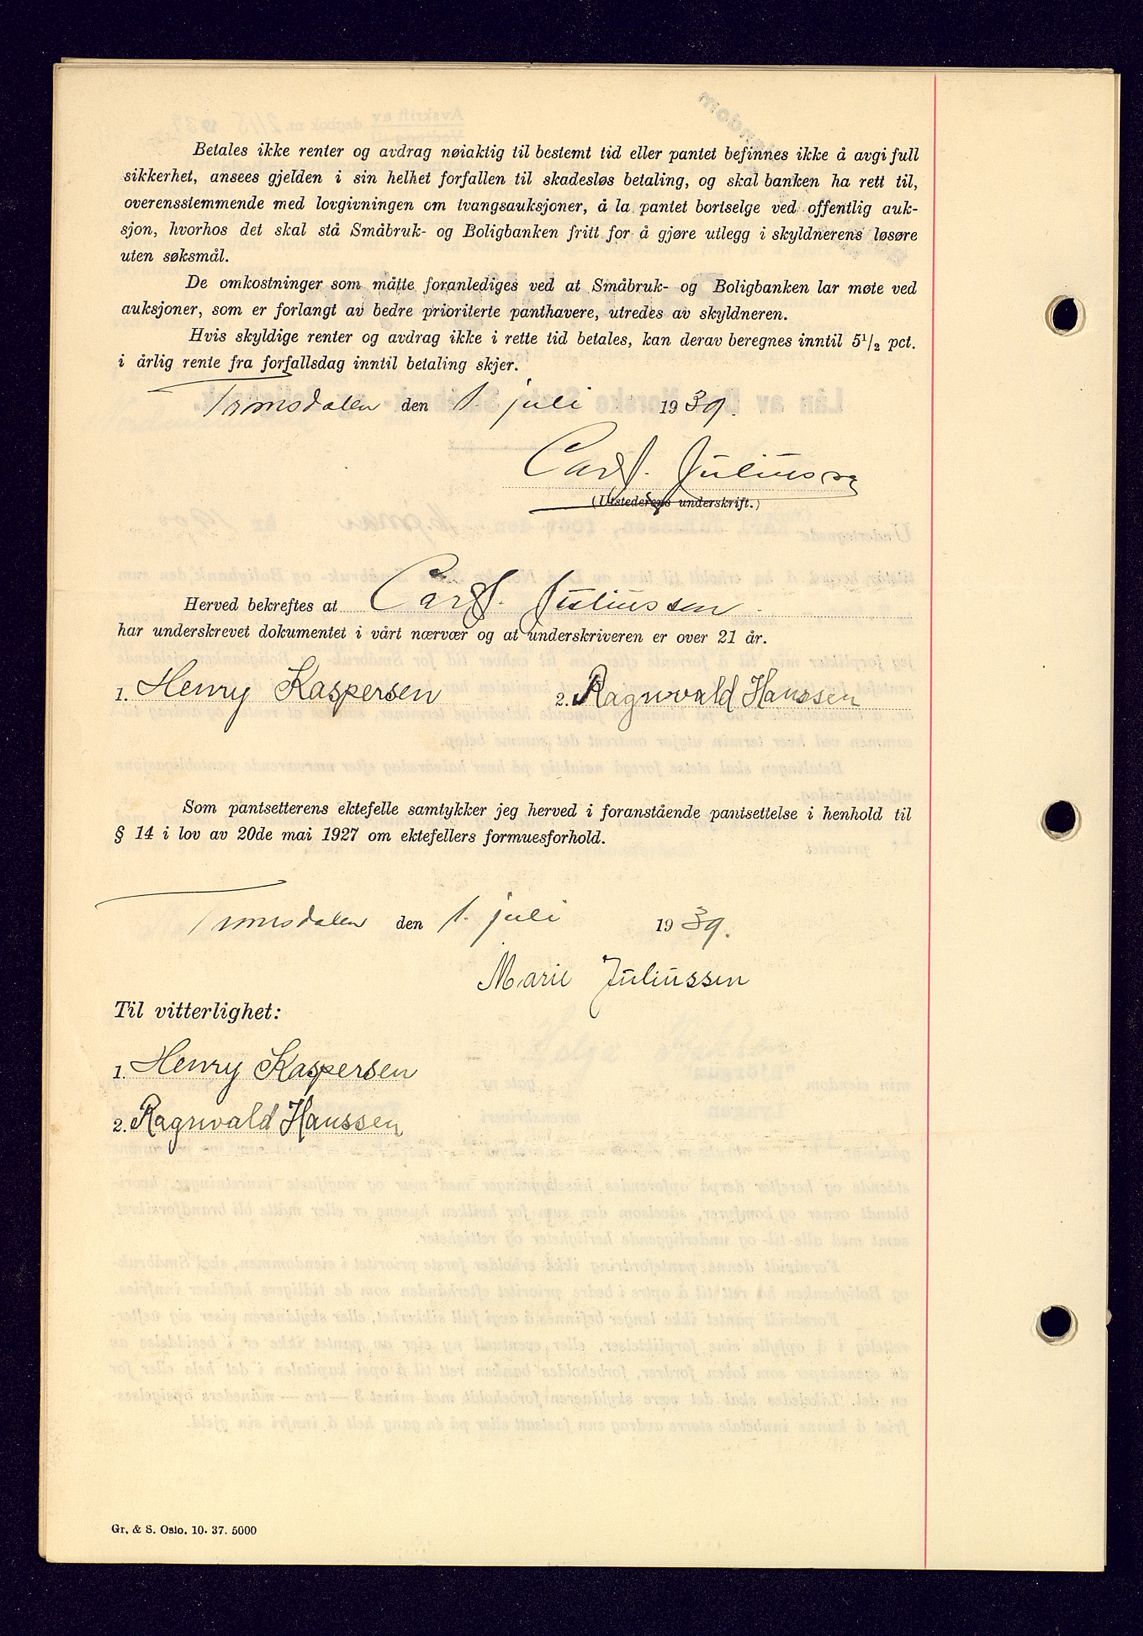 Betales ikke renter og avdrag nøiaktig til bestemt tid eller pantet befinnes ikke å avgi full
sikkerhet, ansees gjelden i sin helhet forfallen til skadesløs betaling, og skal banken ha rett til,
overensstemmende med lovgivningen om tvangsauksjoner, å la pantet bortselge ved offentlig auk-
sjon, hvorhos det skal stå Småbruk- og Boligbanken fritt for å gjøre utlegg i skyldnerens løsøre
uten søksmål.
De omkostninger som måtte foranlediges ved at Småbruk- og Boligbanken lar møte ved
auksjoner, som er forlangt av bedre prioriterte panthavere, utredes av skyldneren.
Hvis skyldige renter og avdrag ikke i rette tid betales, kan derav beregnes inntil 5 1/2 pct.
i årlig rente fra forfallsdag inntil betaling skjer.
Tromsdalen den 1. juli 1939.
Carl. Juliussen
(Utstederens underskrift.)
Herved bekreftes at Carl. Juliussen
har underskrevet dokumentet i vårt nærvær og at underskriveren er over 21 år.
1. Henry Kaspersen 2. Ragnvald Hanssen
Som pantsetterens ektefelle samtykker jeg herved i foranstående pantsettelse i henhold til
§ 14 i lov av 20de mai 1927 om ektefellers formuesforhold.
Tromsdalen den 1. juli 1939.
Marie Juliussen
Til vitterlighet:
1. Henry Kaspersen
2. Ragnvald Hanssen
Gr. & S. Oslo. 10. 37. 5000